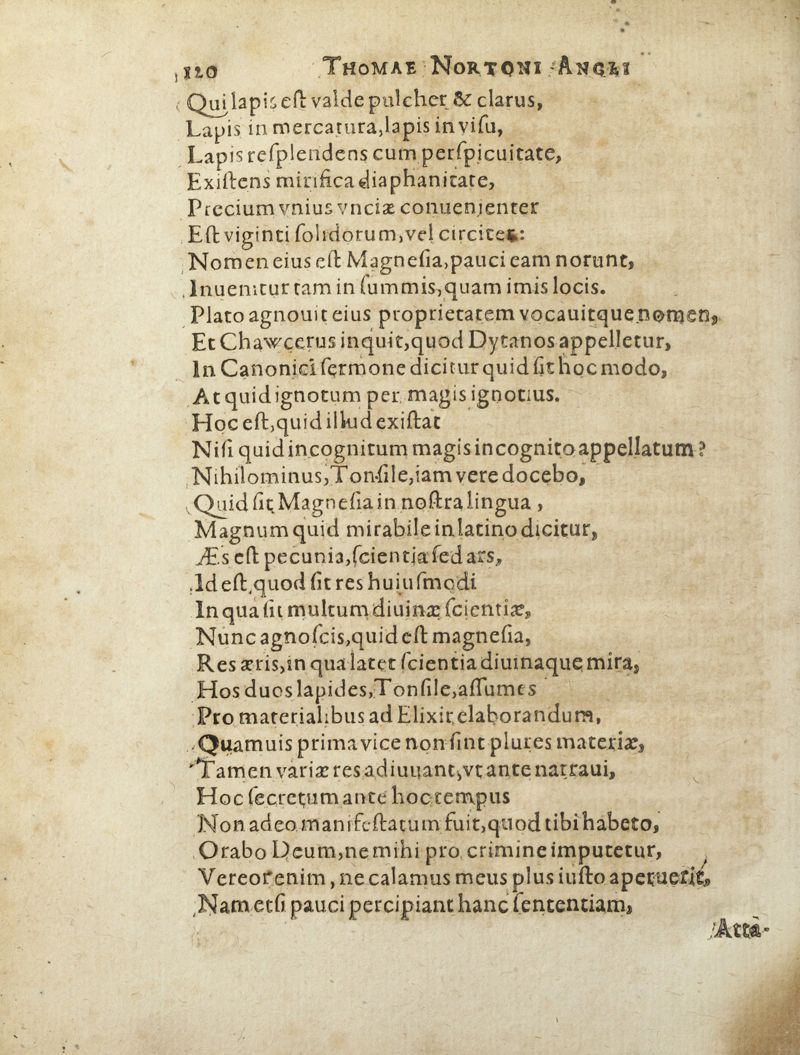 120 THOMAE NORTONI ANGLI
Qui lapis eſt valde pulcher & clarus,
Lapis in mercatura,lapis in viſu,
Lapis reſplendens cum perſpicuitate,
Exiſtens mirifica diaphanitate,
Precium vnius vnciæ conuenienter
Eſt viginti ſolidorum,vel circiter:
Nomen eius eſt Magneſia,pauci eam norunt,
Inuenitur tam in ſummis,quam imis locis.
Plato agnouit eius proprietatem vocauitque nomen,
Et Chawcerus inquit,quod Dytanos appelletur,
In Canonici ſermone dicitur quid ſit hoc modo,
At quid ignotum per magis ignotius.
Hoc eſt,quid illud exiſtat
Niſi quid incognitum magis incognito appellatum?
Nihilominus,Tonſile,iam vere docebo,
Quid ſit Magneſia in noſtra lingua,
Magnum quid mirabile in latino dicitur,
Æs eſt pecunia,ſcientia ſed ars,
Id eſt,quod ſit res huiuſmodi
In qua ſit multum diuinæ ſcientiæ,
Nunc agnoſcis,quid eſt magneſia,
Res æris,in qua latet ſcientia diuinaque mira,
Hos duos lapides,Tonſile,aſſumes
Pro materialibus ad Elixir elaborandum,
Quamuis prima vice non ſint plures materiæ,
Tamen variæ res adiuuant,vt ante narraui,
Hoc ſecretum ante hoc tempus
Non adeo manifeſtatum fuit,quod tibi habeto,
Orabo Deum,ne mihi pro crimine imputetur,
Vereor enim, ne calamus meus plus iuſto aperuerit,
Nam etſi pauci percipiant hanc ſententiam,
Atta-